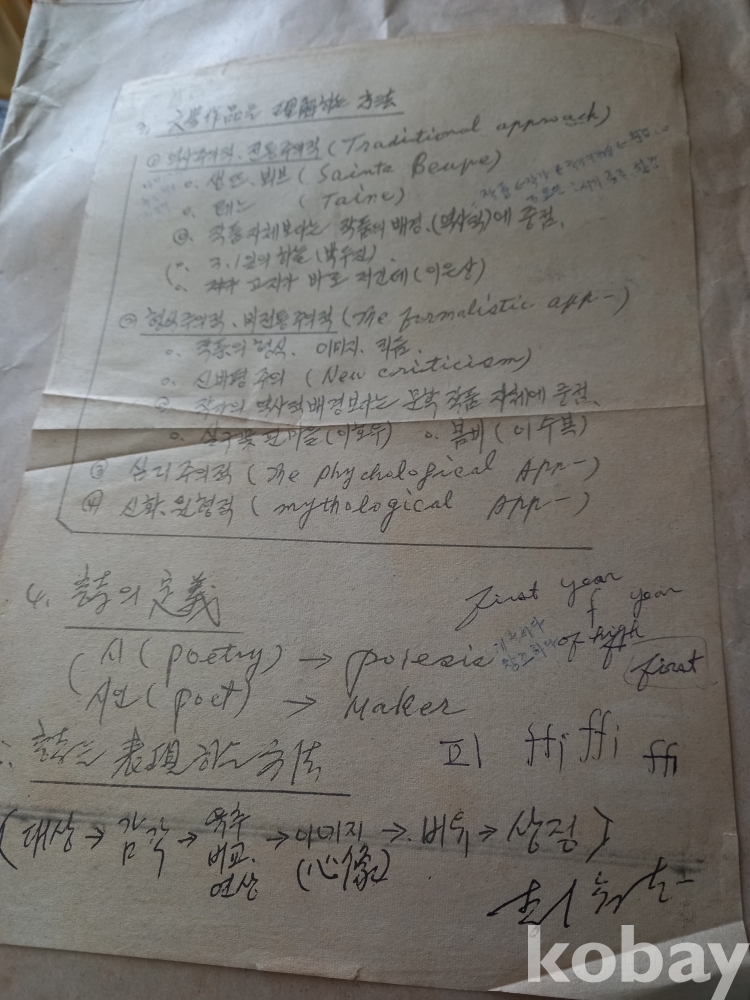 3. 文學作品을 理解하는 方法
① 역사주의적, 전통주의적 (Traditional approach)
○. 생뜨. 뵈브 (Sainte Beupe)
○. 테느 (Taine)
◎. 작품 자체보다는 작품의 배경 (역사적)에 중점.
○. 3.1절의 하늘 (박두진)
○. 고지가 바로 저긴데 (이은상)
② 형식주의적, 비전통주의적 (The formalistic app-)
○. 작품의 형식. 이미지.
○. 신비평주의 (New criticism)
◎ 작가의 역사적 배경보다는 문학 작품 자체에 중점.
○. 살구꽃 핀 마을 (이호우) ○. 봄비 (이수복)
③ 심리주의적 (The phychological App-)
④ 신화. 원형적 (mythological App-)
4. 詩의 定義
first year
f year
of high
first
시 (poetry) → poiesis
창조하다
시인 (poet) → Maker
詩는 表現하는 方法
ffi ffi ffi
(대상 → 감각 → 유추 비교. 연상 → 이미지 (心像) → 비유 → 상징)
kobay